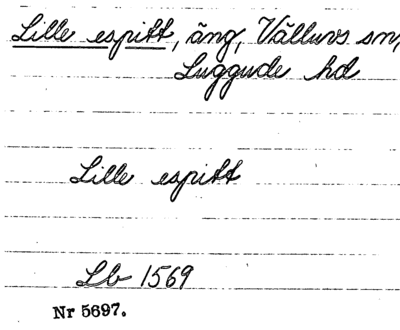 Lille espitt, äng, Välluvs sn,
Luggude hd
Lille espitt
Lb 1569
Nr 5697.